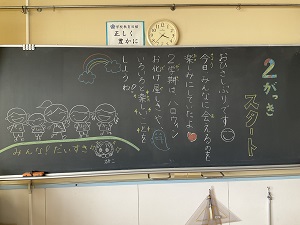 正しく
豊かに
2がっき
スタート
おひさしぶりです
今日みんなに会えるのを
楽しみにしていたよ
2学期は、ハロウィン
お化け屋しき
いろいろ楽しいことを
しようね!
みんな!だいすき